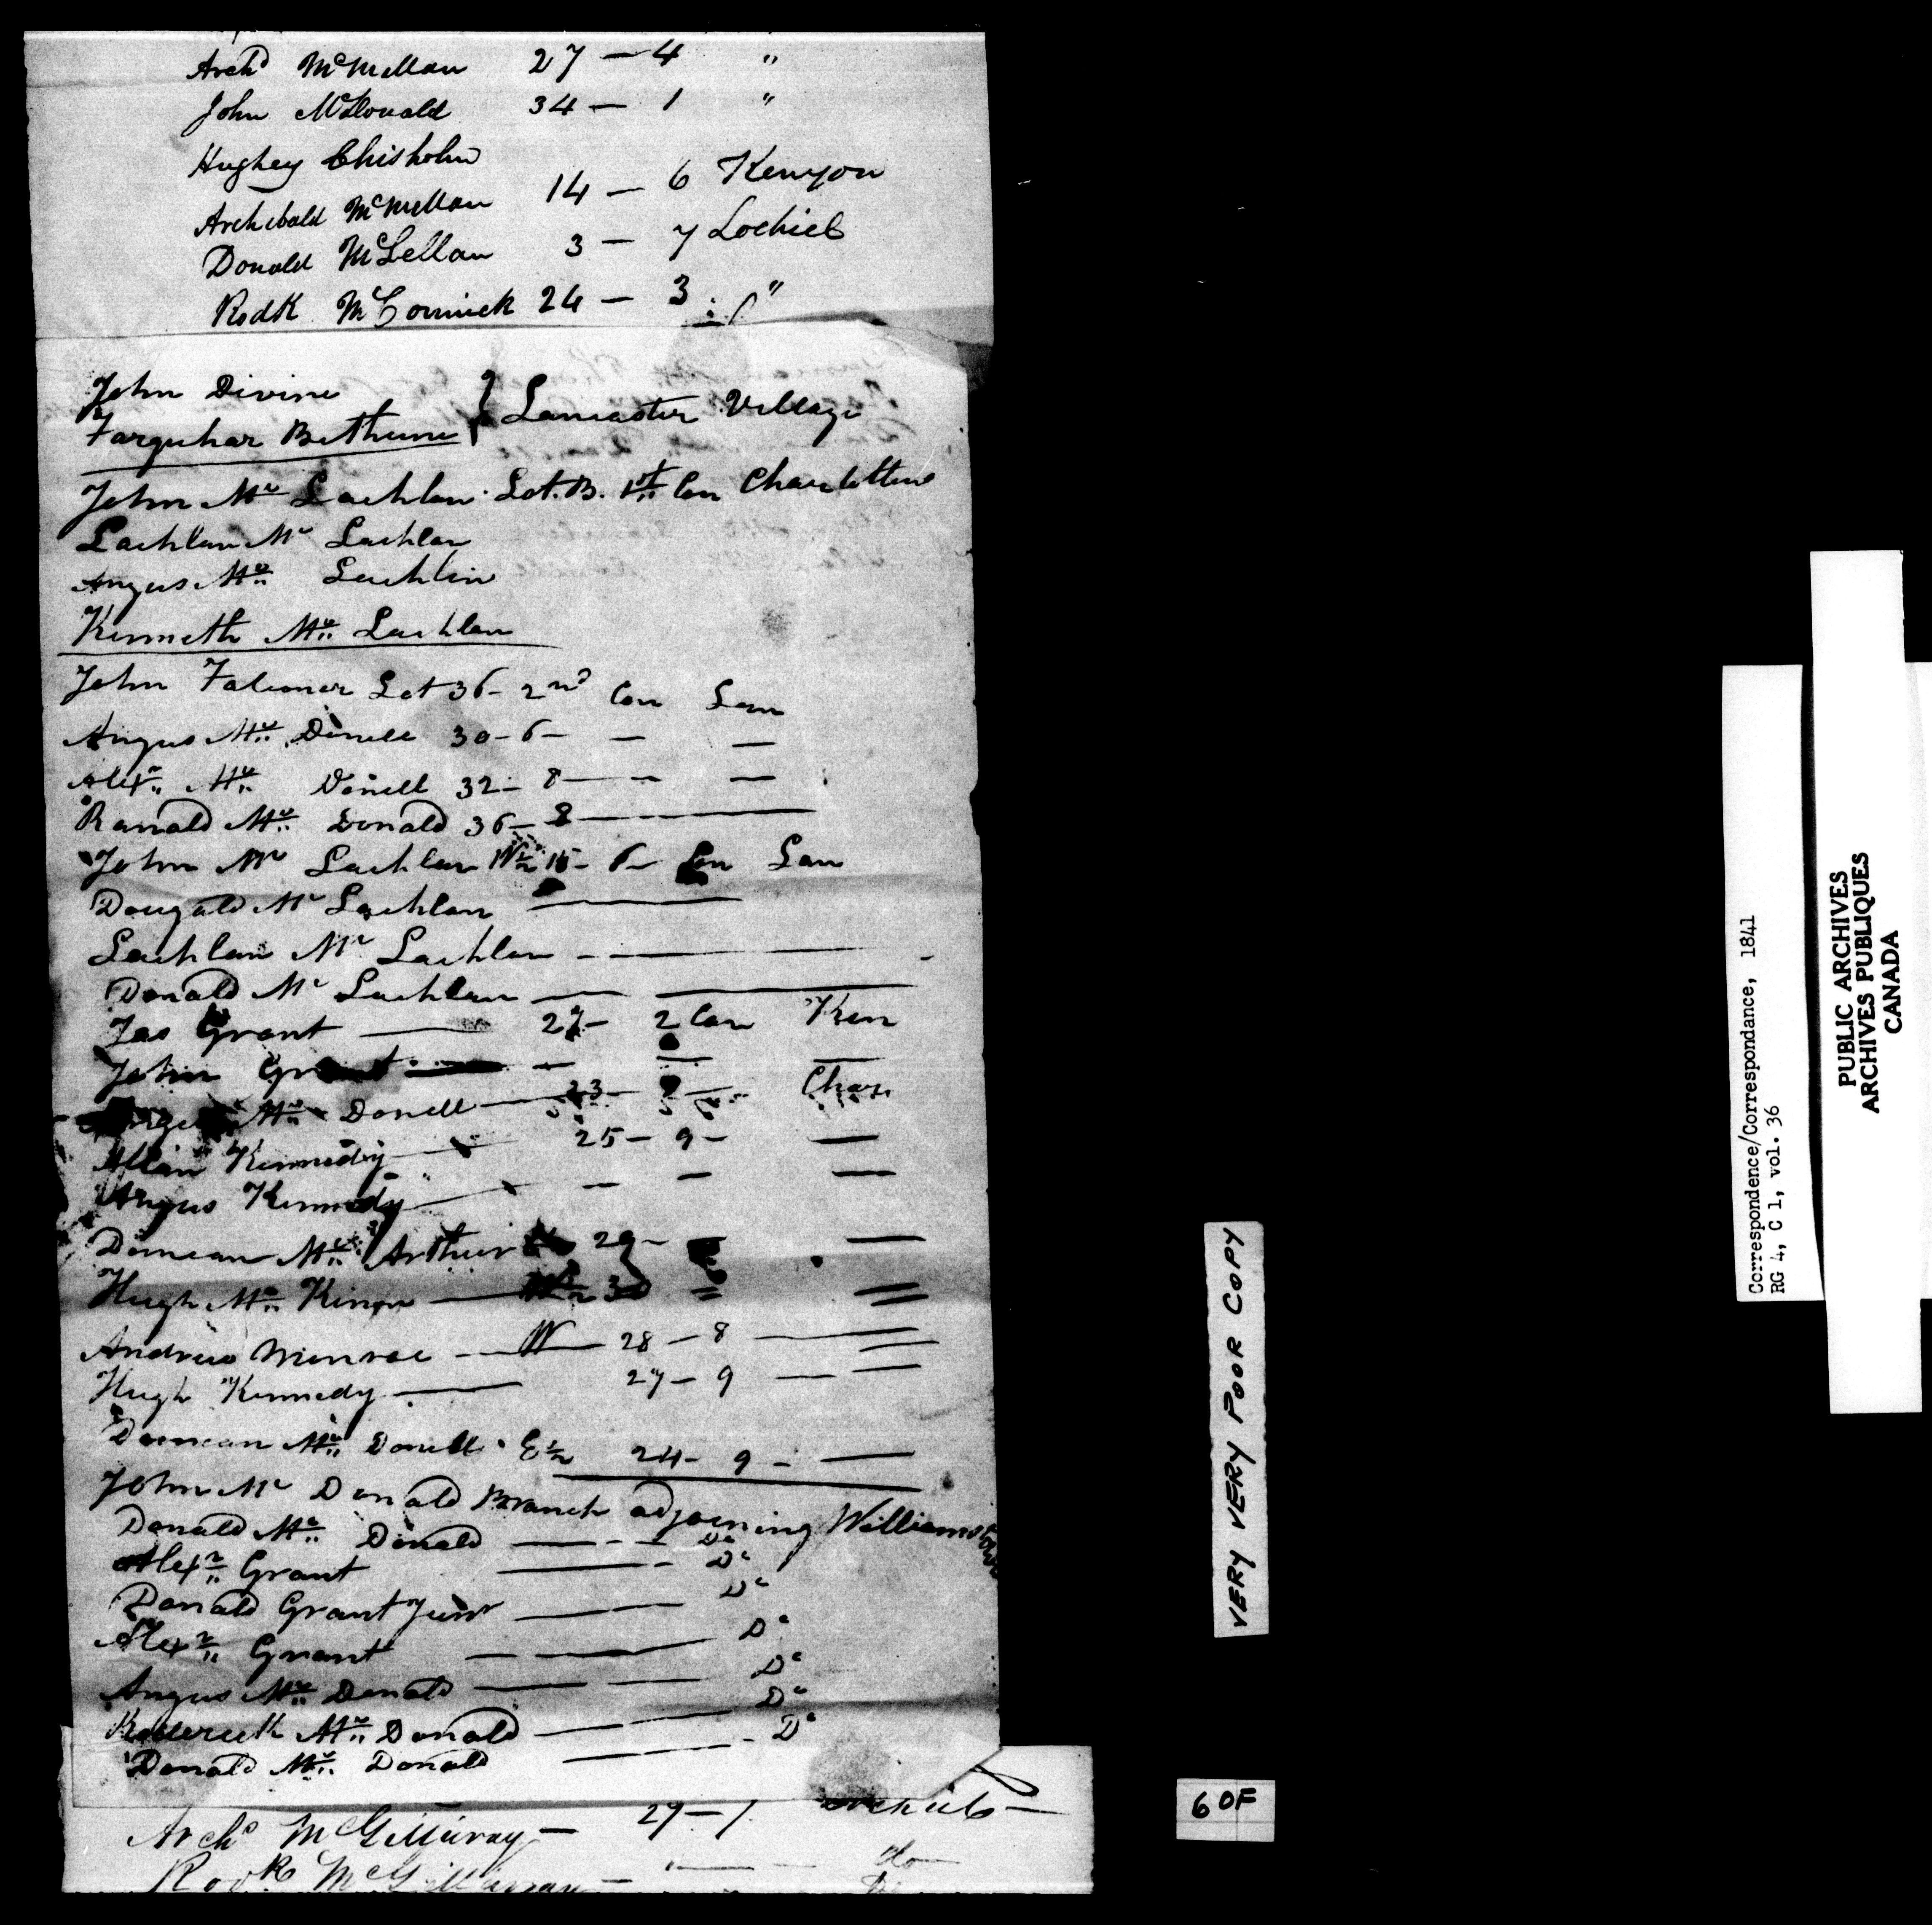 Archd McMillan 27 — 4 "
John McDonald 34 — 1 "
Hughey Chisholm
Archibald McMillan 14 — 6 Kenyon
Donald McLellan 3 — 7 Lochiel
Rodk McCormick 24 — 3 "
John Divine
Farquhar Bethune } Lancaster Village
John Mc Lachlan Lot. B. 1st Con Charlotten
Lachlan Mc Lachlan
Angus Mc Lachlin
Kenneth Mc Lachlan
John Falconer Lot 36 - 2nd Con Lan
Angus Mc Donell 30 - 6 - — —
Alexr Mc Donell 32 - 8 — — —
Ranald Mc Donald 36 - 8 —
John Mc Lachlan W½ 15 - 6 - Con Lan
Dougald Mc Lachlan —
Lachlan Mc Lachlan - —
Donald Mc Lachlan — —
Jas Grant — 27 - 2 Con Ken
John Grant — — — —
Mc Donell — 23 - 9 — Char
Allan Kennedy — 25 - 9 - —
Angus Kennedy — — — —
Duncan Mc Arthur 29 - —
Hugh Mc Kinnon — W½ 30 = =
Andrew Munroe — W — 28 — 8 — =
Hugh Kennedy — 27 — 9 — —
Duncan Mc Donell E½ 24 - 9 - —
John Mc Donald Branch adjoining Williamstown
Donald Mc Donald — - - Do
Alexr Grant — - Do
Donald Grant Junr — — Do
Alexr Grant — — Do
Angus Mc Donald — — Do
Roderick Mc Donald — — Do
Donald Mc Donald — — - Do
Archd McGillivray — 29 — 7 Lochiel —
Rodk McGillivray — — - do
Correspondence/Correspondance, 1841
RG 4, C 1, vol. 36
PUBLIC ARCHIVES
ARCHIVES PUBLIQUES
CANADA
VERY VERY POOR COPY
6 OF